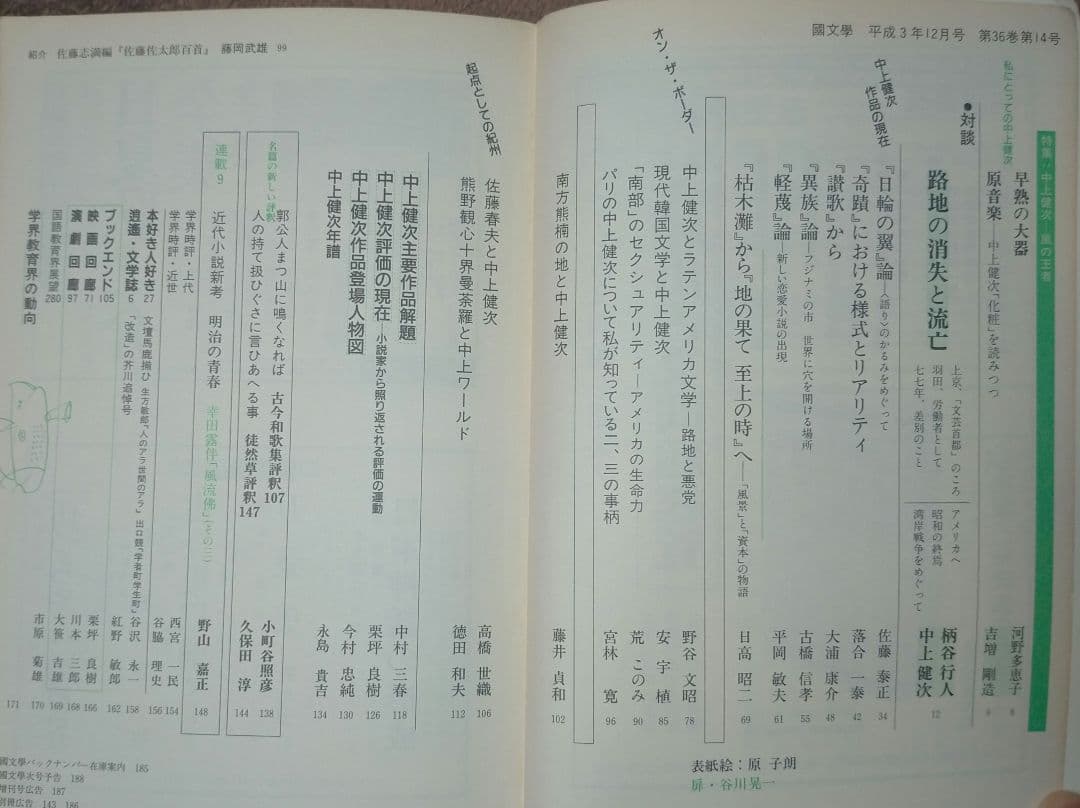 國文學 平成3年12月号 第36巻第14号
特集：中上健次―風の王者
私にとっての中上健次
早熟の大器 河野多恵子 6
原音楽―中上健次「化粧」を読みつつ 吉増剛造
●対談
路地の消失と流亡 柄谷行人 中上健次 12
上京、「文芸首都」のころ
羽田、労働者として
七七年、差別のこと
アメリカへ
昭和の終焉
湾岸戦争をめぐって
中上健次作品の現在
『日輪の翼』論―〈語り〉のかるみをめぐって 佐藤泰正 34
『奇蹟』における様式とリアリティ 落合一泰 42
『讃歌』から 大浦康介 48
『異族』論―フジナミの市 世界に穴を開ける場所 古橋信孝 55
『軽蔑』論―新しい恋愛小説の出現 平岡敏夫 61
『枯木灘』から『地の果て 至上の時』へ―「風景」と「資本」の物語 日高昭二 69
オン・ザ・ボーダー
中上健次とラテンアメリカ文学―路地と悪党 野谷文昭 78
現代韓国文学と中上健次 安宇植 85
「南部」のセクシュアリティ―アメリカの生命力 荒このみ 90
パリの中上健次について私が知っている二、三の事柄 宮林寛 96
南方熊楠の地と中上健次 藤井貞和 102
表紙絵：原 子朗
扉・谷川晃一
紹介 佐藤志満編『佐藤佐太郎百首』 藤岡武雄 99
起点としての紀州
佐藤春夫と中上健次 高橋世織 106
熊野観心十界曼荼羅と中上ワールド 徳田和夫 112
中上健次主要作品解題 中村三春 118
中上健次評価の現在―小説家から照り返される評価の運動 栗坪良樹 126
中上健次作品登場人物図 今村忠純 130
中上健次年譜 永島貴吉 134
名篇の新しい評釈
郭公人まつ山に鳴くなれば 古今和歌集評釈107 小町谷照彦 138
人の持て扱ひぐさに言ひあへる事 徒然草評釈147 久保田淳 144
連載9 近代小説新考 明治の青春 幸田露伴「風流佛」（その三） 野山嘉正 148
学界時評・上代 西宮一民 154
学界時評・近世 谷脇理史 156
本好き人好き27 文壇馬鹿揃ひ 生方敏郎「人のアラ世間のアラ」 出口競「学者町学生町」 谷沢永一 158
逍遙・文学誌6 「改造」の芥川追悼号 紅野敏郎 162
ブックエンド105 栗坪良樹 166
映画回廊71 川本三郎 168
演劇回廊97 大笹吉雄 169
国語教育界展望280 市原菊雄 170
学界教育界の動向 171
國文學バックナンバー在庫案内 185
國文學次号予告 188
増刊号広告 187
別冊広告 143 186